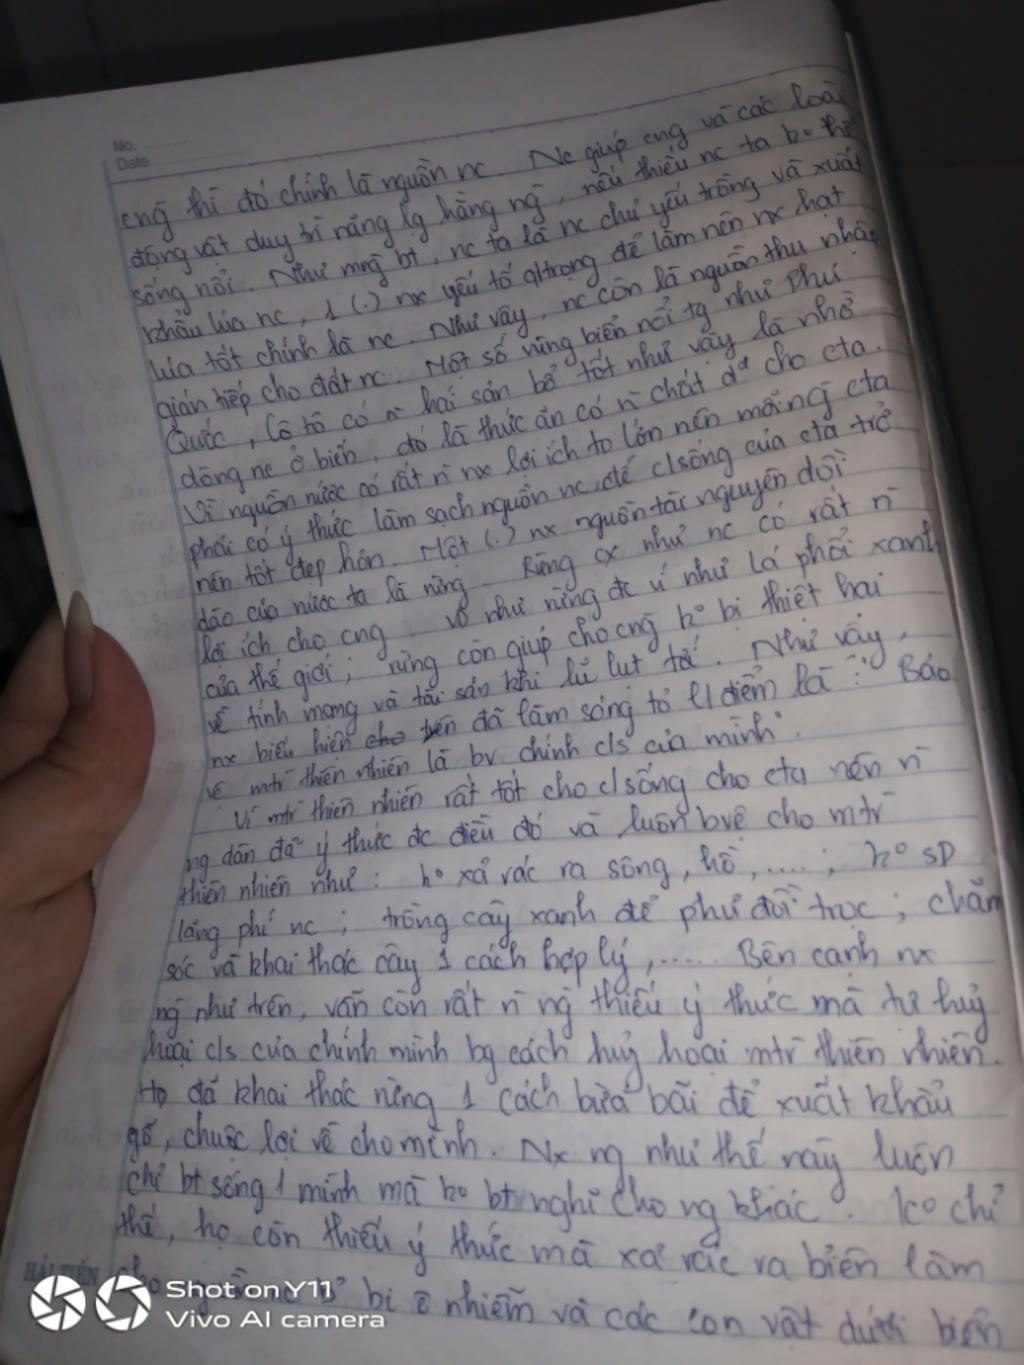 No. ..........
Date ....................
cng thì đó chính là nguồn nc. Nc giúp cng và các loài
động vật duy trì năng lg hằng ng, nếu thiếu nc ta ko thể
sống nổi. Như mng bt, nc ta là nc chủ yếu trồng và xuất
khẩu lúa nc, 1 (.) nx yếu tố qtrọng để làm nên nx hạt
lúa tốt chính là nc. Như vậy, nc còn là nguồn thu nhập
gián tiếp cho đất nc. Một số vùng biển nổi tg như Phú
Quốc, Cô tô có n` hải sản bổ tốt như vậy là nhờ
dòng nc ở biển, đó là thức ăn có n` chất d² cho cta.
Vì nguồn nước có rất n` nx lợi ích to lớn nên mỗi ng cta
phải có ý thức làm sạch nguồn nc, để c/sống của cta trở
nên tốt đẹp hơn. Một (.) nx nguồn tài nguyên dồi
dào của nước ta là rừng. Rừng cx như nc có rất n`
lợi ích cho cng. Ví như rừng đc ví như lá phổi xanh
của thế giới; rừng còn giúp cho cng ko bị thiệt hại
về tính mạng và tài sản khi lũ lụt tới. Như vậy,
nx biểu hiện trên đã làm sáng tỏ l/điểm là : " Bảo
vệ mtr thiên nhiên là bv chính c/s của mình".
Vì mtr thiên nhiên rất tốt cho c/sống cho cta nên n`
ng dân đã ý thức đc điều đó và luôn bvệ cho mtr
thiên nhiên như : ko xả rác ra sông, hồ, .... ; ko SD
lãng phí nc ; trồng cây xanh để phủ đồi trọc ; chăm
sóc và khai thác cây 1 cách hợp lý, ..... Bên cạnh nx
ng như trên, vẫn còn rất n` ng thiếu ý thức mà tự huỷ
hoại c/s của chính mình bg cách huỷ hoại mtr thiên nhiên.
Họ đã khai thác rừng 1 cách bừa bãi để xuất khẩu
gỗ, chuộc lợi về cho mình. Nx ng như thế này luôn
chỉ bt sống 1 mình mà ko bt nghĩ cho ng khác. Ko chỉ
thế, họ còn thiếu ý thức mà xả rác ra biển làm
bị ô nhiễm và các con vật dưới biển
HẢI TIẾN
Shot on Y11
Vivo AI camera